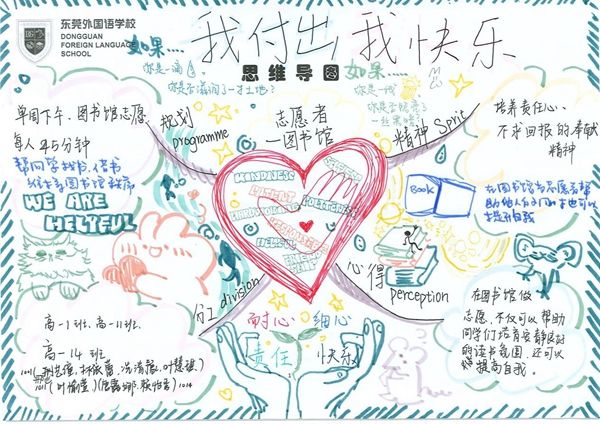 东莞外国语学校
DONGGUAN
FOREIGN LANGUAGE
SCHOOL
我付出 我快乐
思维导图
如果....
你是一滴
你是否滋润了一寸土地?
如果....
你是一线
你是否照亮了
一丝黑暗?
单周下午、图书馆志愿
每人45分钟
帮同学找书、借书
维护图书馆秩序
WE ARE
HELTFUL
规划
programme
志愿者
—图书馆
精神 Sprit
培养责任心、
不求回报的奉献
精神
KINDNESS
POLITENESS
BOOK
在图书馆当志愿者帮
助他人的同时也可以
提升自我
分工 division
心得
perception
高一1班、高一11班、
高一14班
耐心 细心
责任 快乐
在图书馆做
志愿,不仅可以帮助
同学们培育安静良好
的读书氛围,还可以
提高自我。